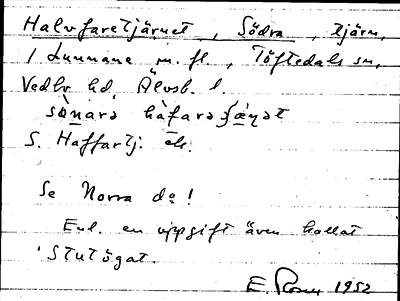 Halvfaretjärnet, Södra, tjärn,
/ Lunnane m. fl., Töftedals sn,
Vedbo hd, Älvsb. l.
S. Haffartj. el.
Se Norra do!
Enl. en uppgift även kallat
'Stutögat.
E. 1952